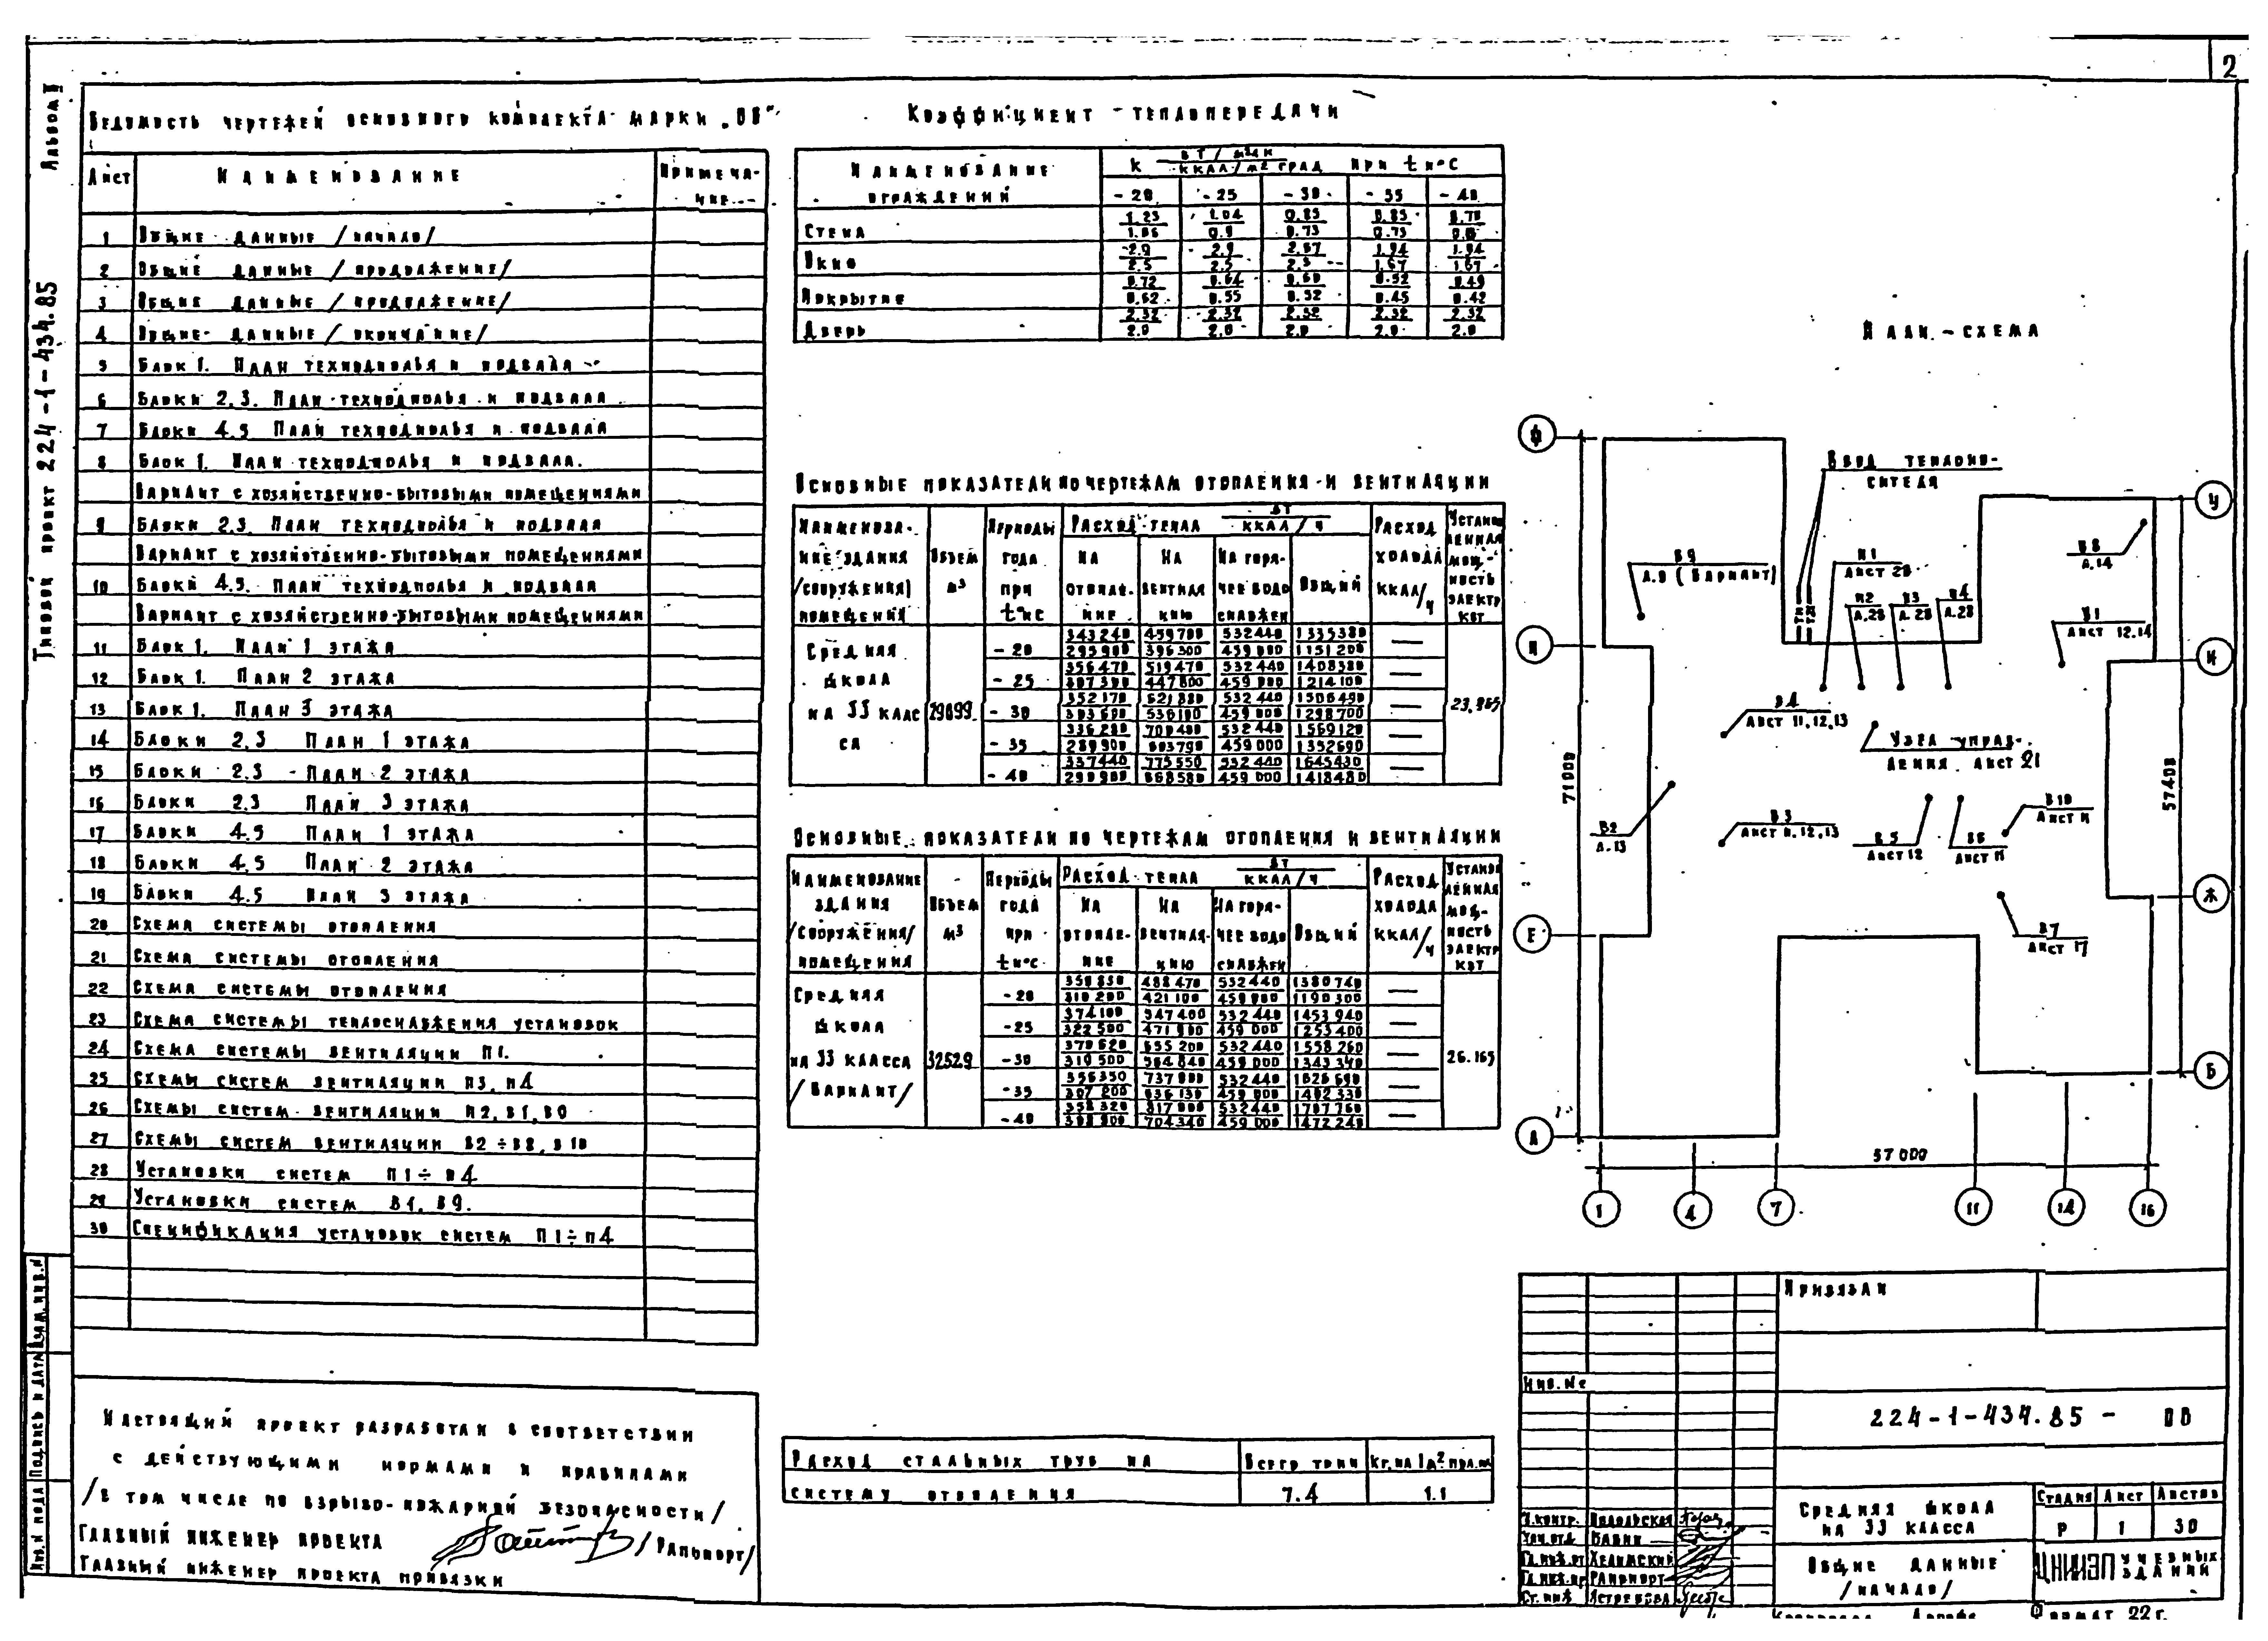 2
Альбом II
Типовой проект 224-1-434.85
Ведомость чертежей основного комплекта марки „ОВ"
Лист Наименование Примечание
1 Общие данные /начало/
2 Общие данные /продолжение/
3 Общие данные /продолжение/
4 Общие данные /окончание/
5 Блок 1. План техподполья и подвала
6 Блоки 2.3. План техподполья и подвала
7 Блоки 4.5 План техподполья и подвала
8 Блок 1. План техподполья и подвала.
Вариант с хозяйственно-бытовыми помещениями
9 Блоки 2.3. План техподполья и подвала
Вариант с хозяйственно-бытовыми помещениями
10 Блоки 4.5. План техподполья и подвала
Вариант с хозяйственно-бытовыми помещениями
11 Блок 1. План 1 этажа
12 Блок 1. План 2 этажа
13 Блок 1. План 3 этажа
14 Блоки 2.3 План 1 этажа
15 Блоки 2.3 План 2 этажа
16 Блоки 2.3 План 3 этажа
17 Блоки 4.5 План 1 этажа
18 Блоки 4.5 План 2 этажа
19 Блоки 4.5 План 3 этажа
20 Схема системы отопления
21 Схема системы отопления
22 Схема системы отопления
23 Схема системы теплоснабжения установок
24 Схема системы вентиляции П1.
25 Схемы систем вентиляции П3, П4
26 Схемы систем вентиляции П2, В1, В9
27 Схемы систем вентиляции В2÷В8, В10
28 Установки систем П1÷П4
29 Установки систем В1, В9.
30 Спецификация установок систем П1÷П4
Настоящий проект разработан в соответствии
с действующими нормами и правилами
/в том числе по взрыво-пожарной безопасности/
Главный инженер проекта /Рапопорт/
Главный инженер проекта привязки
Взам. инв. №
Подпись и дата
Инв. № подл
Коэффициент теплопередачи
Наименование ограждений К Вт/м²·К ккал/м² град при tн°С
-20 -25 -30 -35 -40
Стена 1.23 1.04 0.85 0.85 0.70
1.06 0.9 0.73 0.73 0.6
Окно 2.9 2.9 2.67 1.94 1.94
2.5 2.5 2.3 1.67 1.67
Покрытие 0.72 0.64 0.60 0.52 0.49
0.62 0.55 0.52 0.45 0.42
Дверь 2.32 2.32 2.32 2.32 2.32
2.0 2.0 2.0 2.0 2.0
Основные показатели по чертежам отопления и вентиляции
Наименование здания /сооружения/ помещения Объем м³ Периоды года при tн°С Расход тепла Вт ккал/ч Расход холода ккал/ч Установленная мощность электр кВт
на отопление на вентиляцию на горячее водоснабжен Общий
Средняя школа на 33 класса 29099 23.965
-20 343240 459700 532440 1335380 —
295900 396300 459000 1151200
-25 356470 519470 532440 1408380 —
307300 447800 459000 1214100
-30 352170 621880 532440 1506490 —
303600 536100 459000 1298700
-35 336280 700400 532440 1569120 —
289900 603790 459000 1352690
-40 337440 775550 532440 1645430 —
290900 668580 459000 1418480
Основные показатели по чертежам отопления и вентиляции
Наименование здания /сооружения/ помещения Объем м³ Периоды года при tн°С Расход тепла Вт ккал/ч Расход холода ккал/ч Установленная мощность электр кВт
на отопление на вентиляцию на горячее водоснабжен Общий
Средняя школа на 33 класса /Вариант/ 32529 26.165
-20 359830 488470 532440 1380740 —
310200 421100 459000 1190300
-25 374100 547400 532440 1453940 —
322500 471900 459000 1253400
-30 370620 655200 532440 1558260 —
319500 564840 459000 1343340
-35 356350 737900 532440 1626690 —
307200 636130 459000 1402330
-40 358320 817000 532440 1707760 —
308900 704340 459000 1472240
Расход стальных труб на Всего тонн Кг. на 1м² пол.пл
систему отопления 7.4 1.1
План-схема
Ввод теплоносителя
В9
Л.9 (Вариант)
П1
Лист 28
П2
Л.28
П3
Л.28
П4
Л.28
В8
Л.14
В1
Лист 12.14
В4
Лист 11,12,13
Узел управления. Лист 21
В2
Л.13
В3
Лист 11,12,13
В5
Лист 12
В6
Лист 11
В10
Лист 11
В7
Лист 17
71000
57400
57000
Ф П Е А
У И Ж Б
1 4 7 11 14 16
Привязан
Инв. №
224-1-434.85 - ОВ
Средняя школа
на 33 класса
Стадия Лист Листов
Р 1 30
Общие данные
/начало/
ЦНИИЭП учебных зданий
Н.контр. Подольская
Нач.отд. Вавин
Гл.инж.от Хелимский
Гл.инж.пр Рапопорт
Ст.инж
Формат 22г.